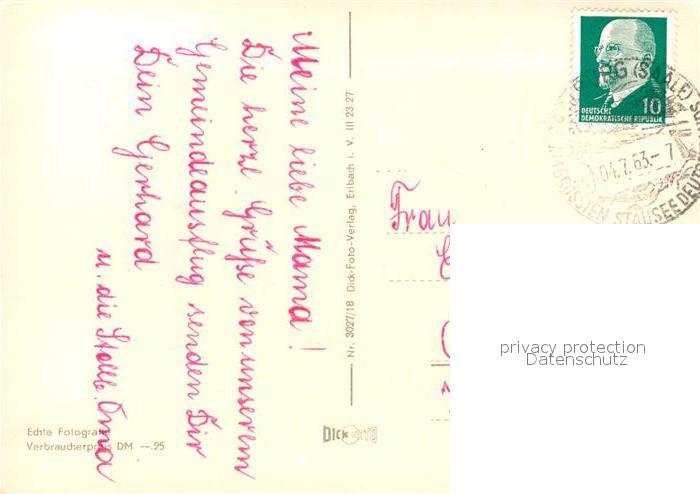 Meine liebe Mama!
Die herzl. Grüße von unserem
Gemeindeausflug senden Dir
Dein Gerhard
u. die Stollb. Oma
Echte Fotografie
Verbraucherpreis DM --.25
Nr. 3027/18 Dick-Foto-Verlag, Erlbach i. V. III 23 27
DICK
DEUTSCHE
DEMOKRATISCHE REPUBLIK
10
(SAALE)
04.7.63.-7
GROSSEN STAUSEE DER DDR
Frau
privacy protection
Datenschutz